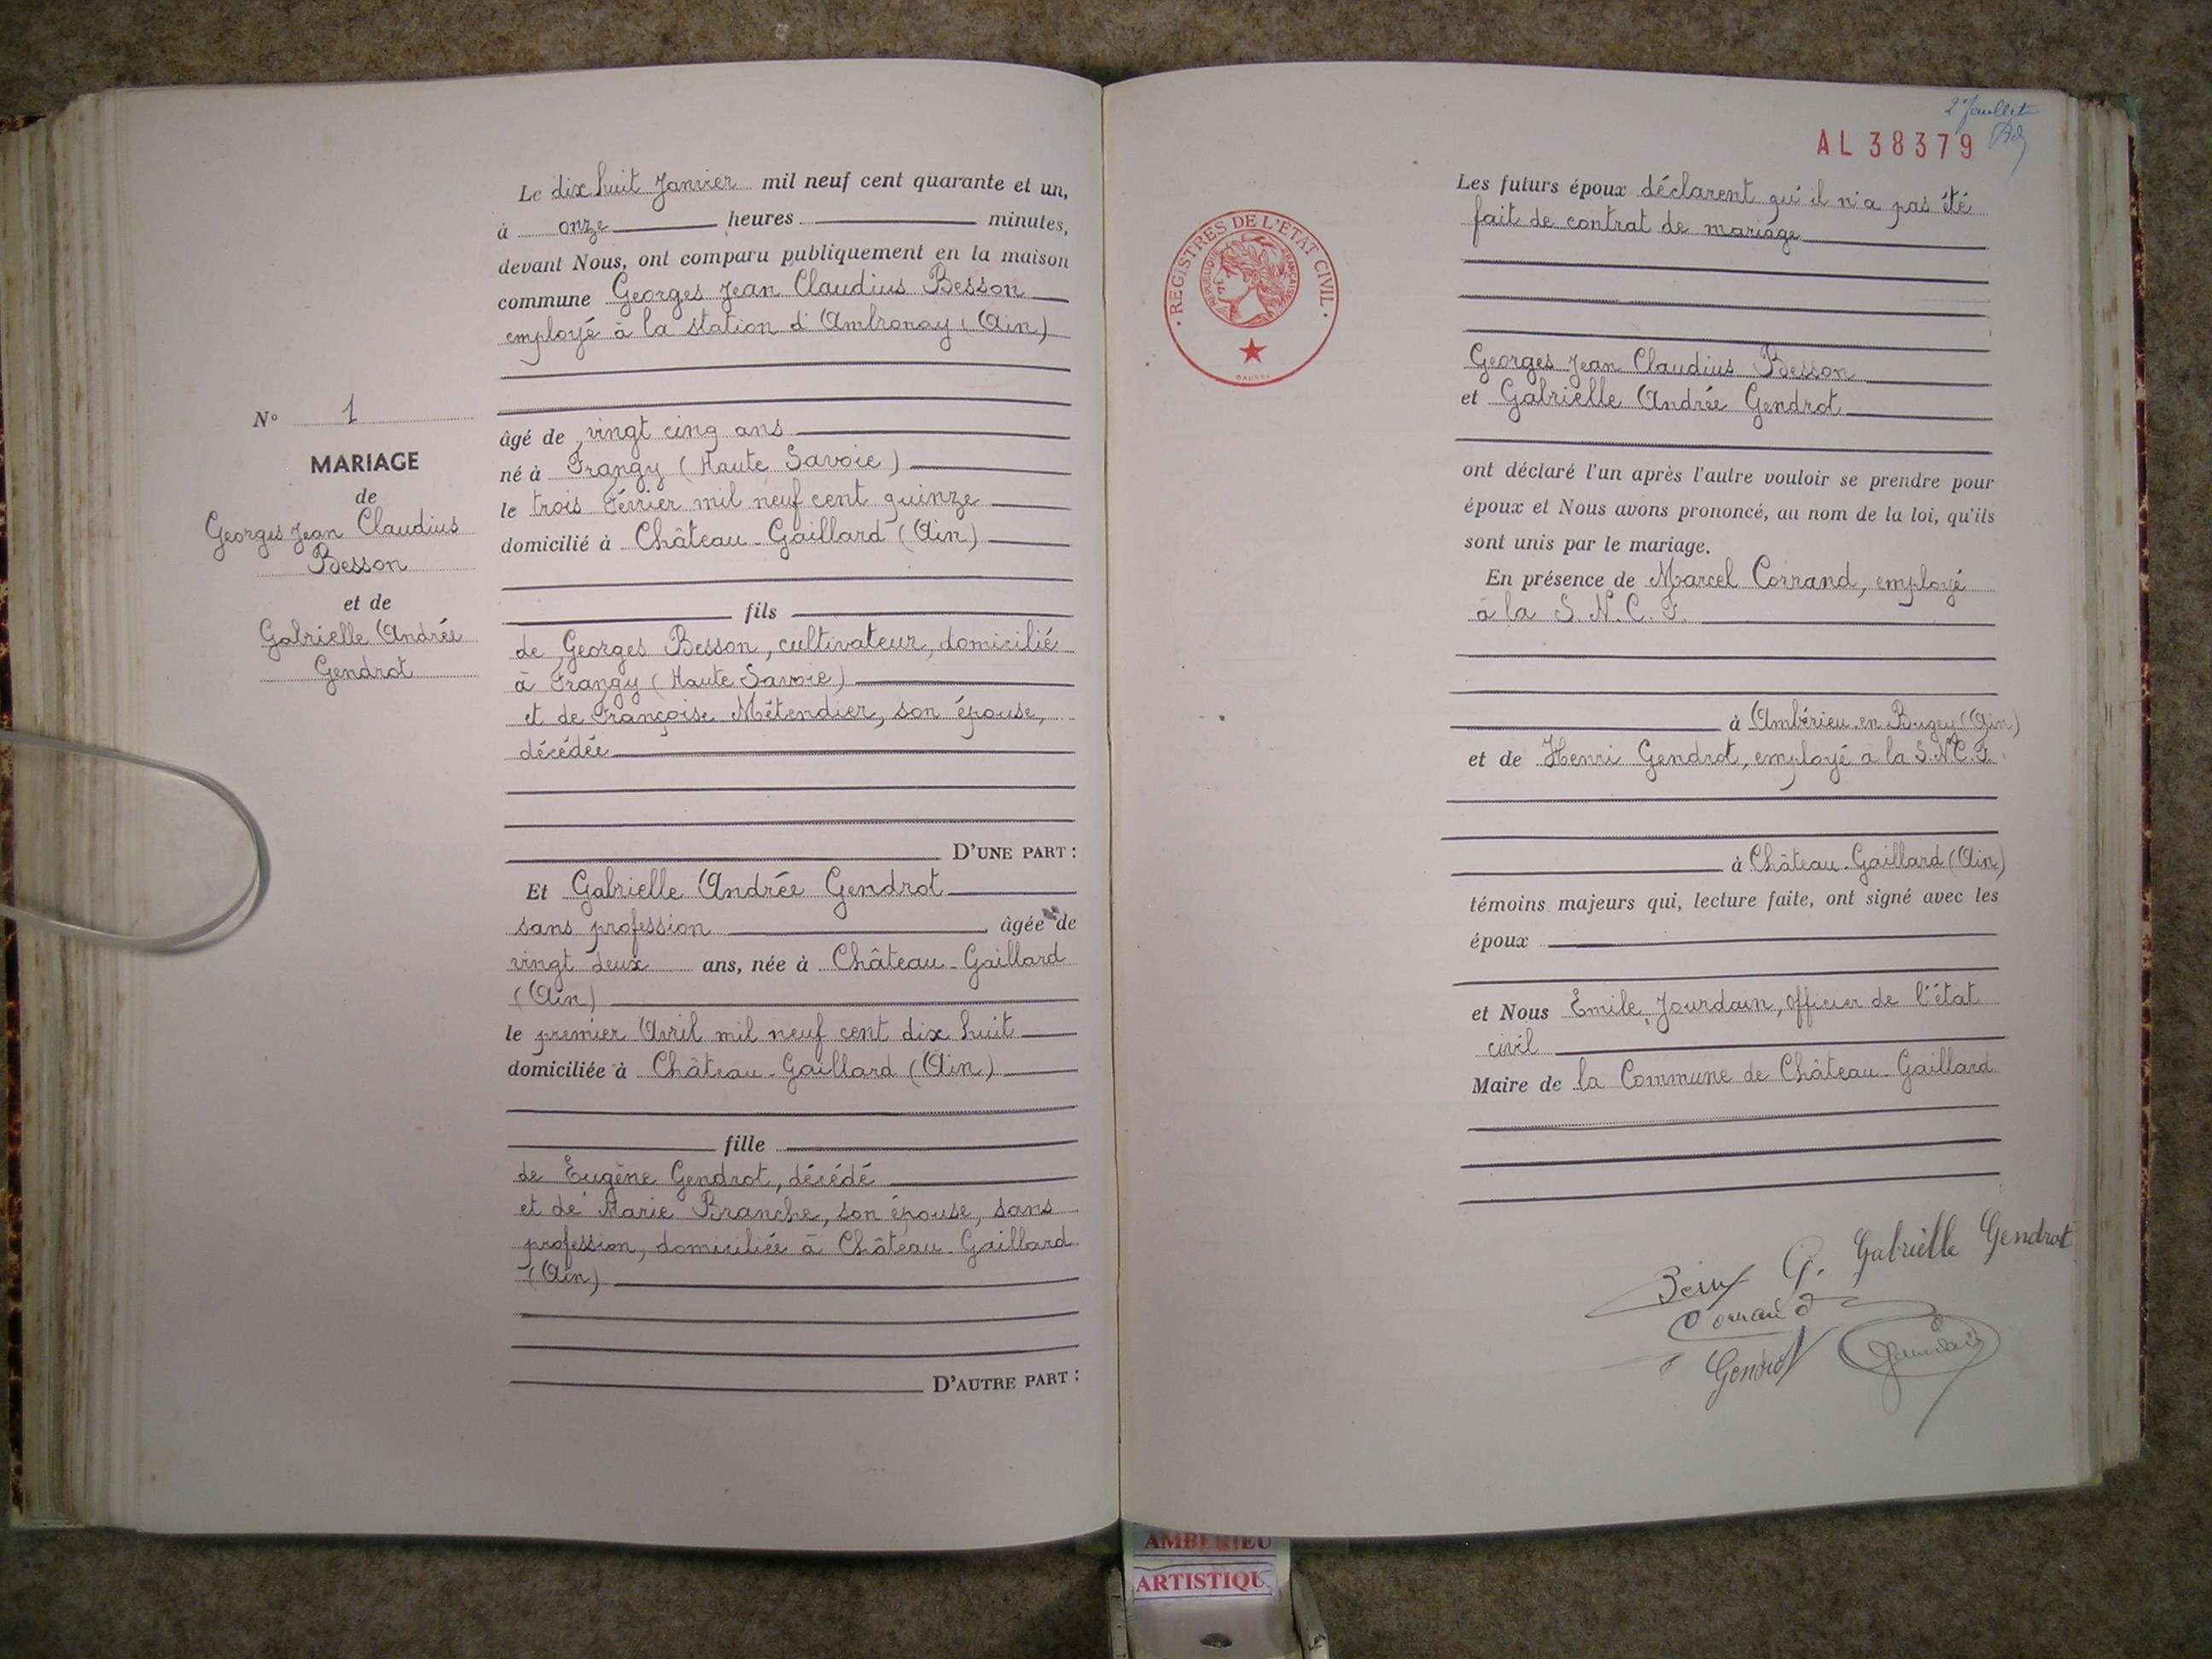 Le dix huit Janvier mil neuf cent quarante et un,
à onze heures minutes,
devant Nous, ont comparu publiquement en la maison
commune Georges Jean Claudius Besson
employé à la station d'Ambronay (Ain)
N° 1
MARIAGE
de
Georges Jean Claudius
Besson
et de
Gabrielle Andrée
Gendrot
âgé de vingt cinq ans
né à Frangy (Haute Savoie)
le trois Février mil neuf cent quinze
domicilié à Château-Gaillard (Ain)
fils
de Georges Besson, cultivateur, domicilié
à Frangy (Haute Savoie)
et de Françoise Métendier, son épouse,
décédée
D'UNE PART :
Et Gabrielle Andrée Gendrot
sans profession, âgée de
vingt deux ans, née à Château-Gaillard
(Ain)
le premier Avril mil neuf cent dix huit
domiciliée à Château-Gaillard (Ain)
fille
de Eugène Gendrot, décédé
et de Marie Branche, son épouse, sans
profession, domiciliée à Château-Gaillard
(Ain)
D'AUTRE PART :
AL 38379
REGISTRES DE L'ETAT CIVIL
REPUBLIQUE FRANÇAISE
Les futurs époux déclarent qu'il n'a pas été
fait de contrat de mariage
Georges Jean Claudius Besson
et Gabrielle Andrée Gendrot
ont déclaré l'un après l'autre vouloir se prendre pour
époux et Nous avons prononcé, au nom de la loi, qu'ils
sont unis par le mariage.
En présence de Marcel Corrand, employé
à la S.N.C.F.
à Ambérieu-en-Bugey (Ain)
et de Henri Gendrot, employé à la S.N.C.F.
à Château-Gaillard (Ain)
témoins majeurs qui, lecture faite, ont signé avec les
époux
et Nous Emile Jourdain, officier de l'état
civil
Maire de la Commune de Château-Gaillard
G. Gabrielle Gendrot
Corrand
Gendrot
AMBERIEU
ARTISTIQU